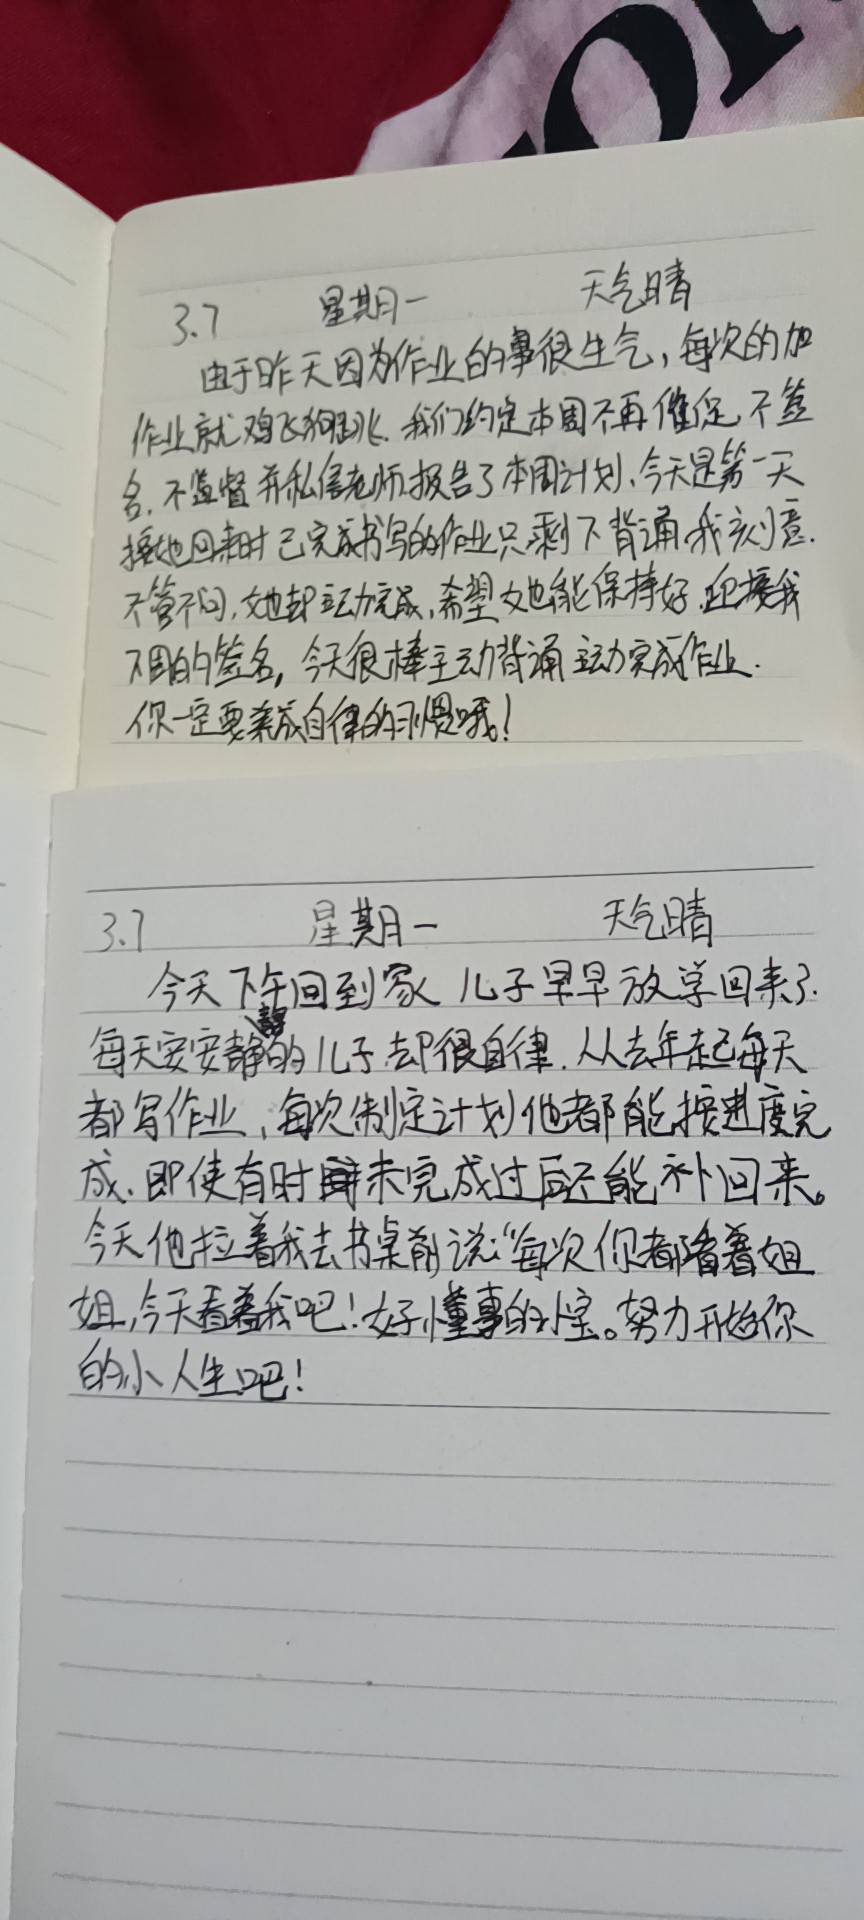 3.7 星期一 天气晴
由于昨天因为作业的事很生气，每次的加
作业就鸡飞狗跳.我们约定本周不再催促,不签
名.不监督并私信老师报告了本周计划、今天是第一天
接她回来时已完成书写的作业只剩下背诵,我刻意.
不管不问,她却主动完成,希望她能保持好.迎接我
下周的签名,今天很棒主动背诵主动完成作业.
你一定要养成自律的习惯哦!
3.7 星期一 天气晴
今天下午回到家 儿子早早放学回来了.
每天安安静的儿子却很自律.从去年起每天
都写作业,每次制定计划他都能按进度完
成.即使有时未完成过后还能补回来。
今天他拉着我去书桌前说:“每次你都陪着姐
姐,今天看着我吧!好懂事的小宝。努力开始你
的小人生吧!